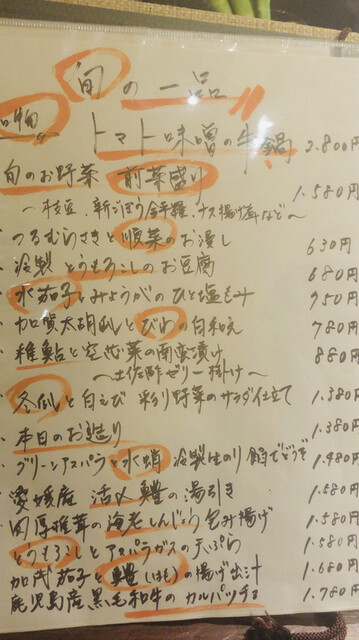 旬の一品
トマト味噌の牛鍋 2.800円
旬のお野菜 前菜盛り 1.580円
〜枝豆、新ごぼう金平、ナス揚げなど〜
・つるむらさきと順菜のお浸し 630円
・冷製とうもろこしのお豆腐 680円
・水茄子とみょうがのひと塩もみ 950円
・加賀太胡瓜とびわの白和え 780円
・稚鮎と空芯菜の南蛮漬け 880円
〜土佐酢ゼリー掛け〜
・冬瓜と白えび 彩り野菜のサラダ仕立て 1.380円
・本日のお造り 1.380円
・グリーンアスパラと水蛸 冷製生のり餡でどうぞ 1.480円
愛媛産 活〆鱧の湯引き 1.580円
肉厚椎茸の海老しんじょう包み揚げ 1.580円
とうもろこしとアスパラガスの天ぷら 1.580円
加茂茄子と鱧(はも)の揚げ出汁 1.680円
鹿児島産黒毛和牛のカルパッチョ 1.780円